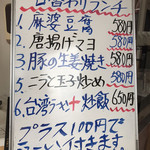 日替わりランチ
1.麻婆豆腐 580円
2.唐揚げマヨ 580円
3.豚の生姜焼き 580円
5.ニラと玉子炒め 580円
6.台湾ラーメン+炒飯 650円
プラス100円で
ラーメン付きます。